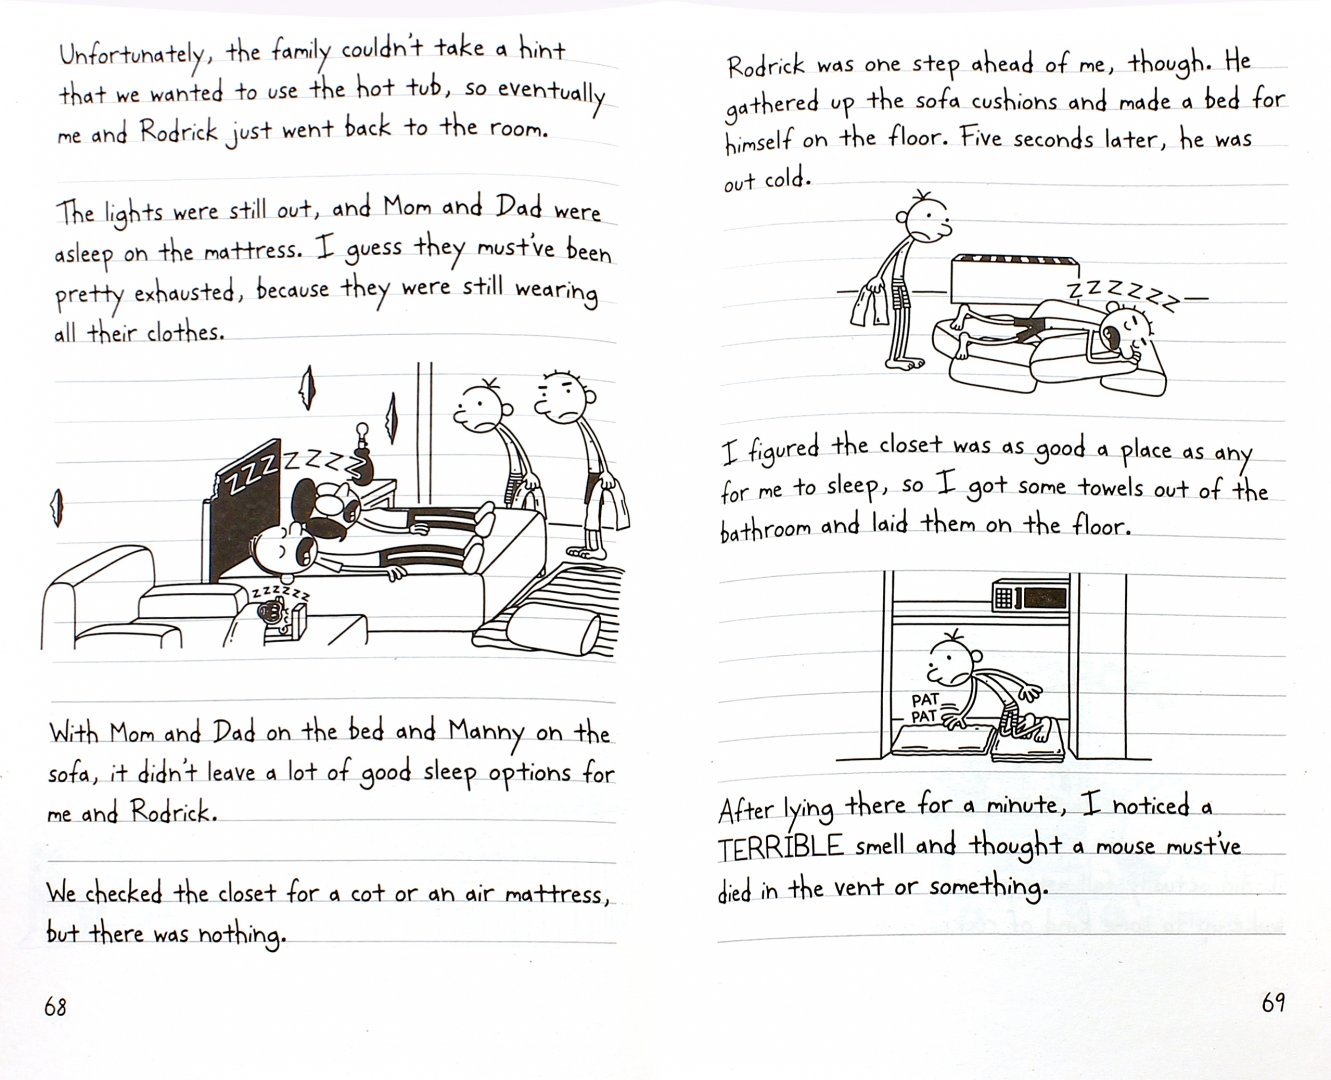 Unfortunately, the family couldn't take a hint
that we wanted to use the hot tub, so eventually
me and Rodrick just went back to the room.
The lights were still out, and Mom and Dad were
asleep on the mattress. I guess they must've been
pretty exhausted, because they were still wearing
all their clothes.
ZZZZZZZ
ZZZZZZ
With Mom and Dad on the bed and Manny on the
sofa, it didn't leave a lot of good sleep options for
me and Rodrick.
We checked the closet for a cot or an air mattress,
but there was nothing.
68
Rodrick was one step ahead of me, though. He
gathered up the sofa cushions and made a bed for
himself on the floor. Five seconds later, he was
out cold.
ZZZZZZ
I figured the closet was as good a place as any
for me to sleep, so I got some towels out of the
bathroom and laid them on the floor.
PAT
PAT
After lying there for a minute, I noticed a
TERRIBLE smell and thought a mouse must've
died in the vent or something.
69